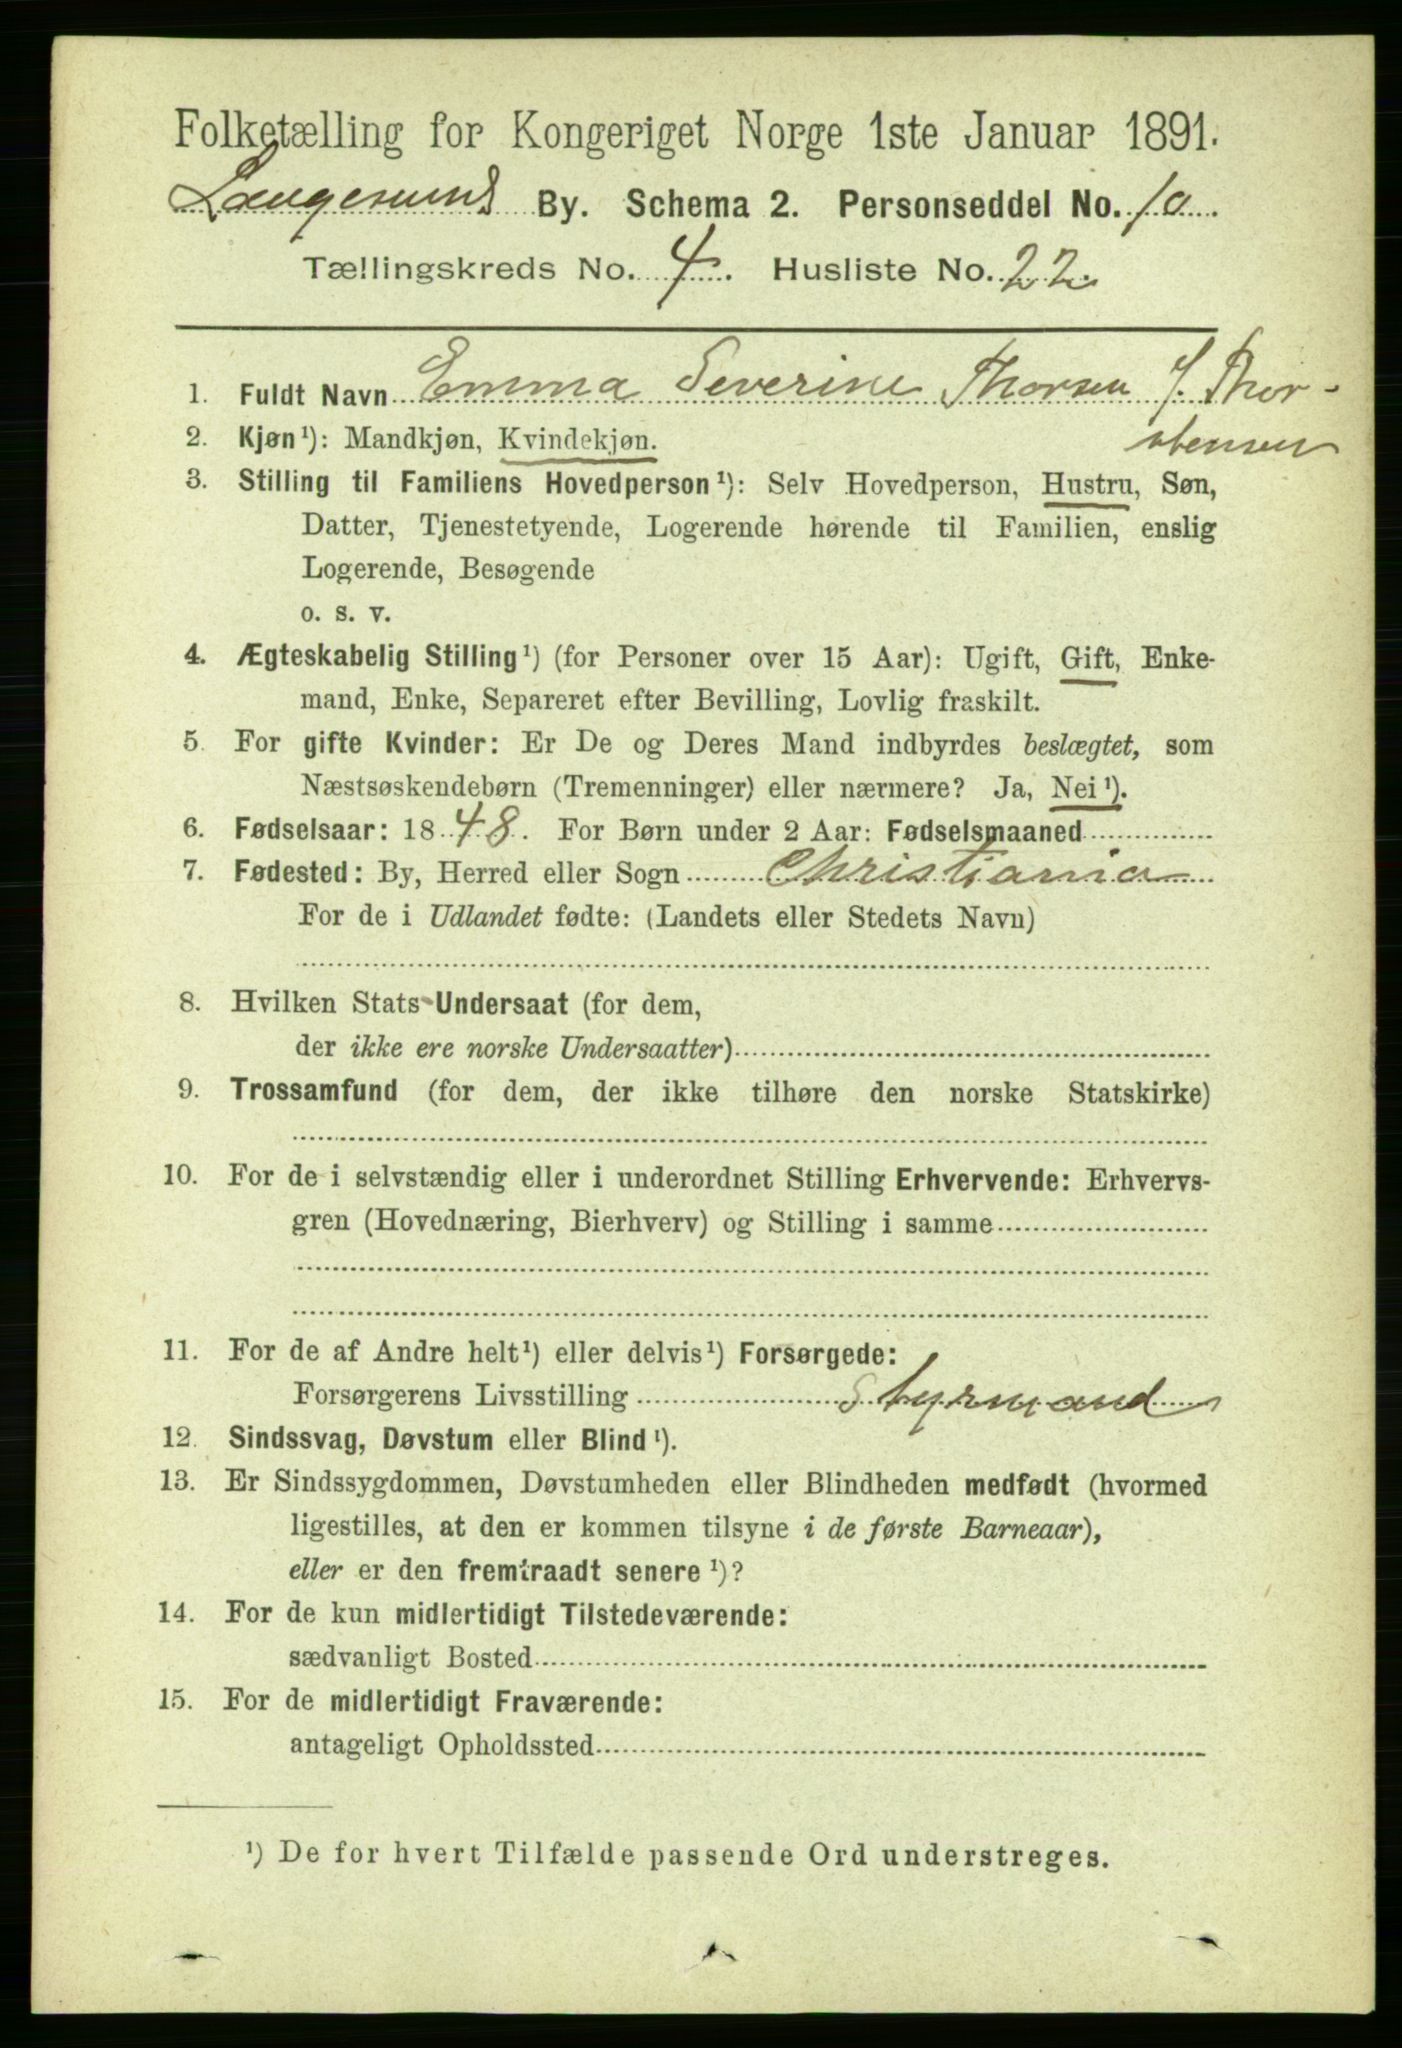 Folketælling for Kongeriget Norge 1ste Januar 1891.
Langesund By. Schema 2. Personseddel No. 10.
Tællingskreds No. 4. Husliste No. 22.
1. Fuldt Navn Emma Severine Thorsen f. Thor-
stensen
2. Kjøn¹): Mandkjøn, Kvindekjøn.
3. Stilling til Familiens Hovedperson¹): Selv Hovedperson, Hustru, Søn,
Datter, Tjenestetyende, Logerende hørende til Familien, enslig
Logerende, Besøgende
o. s. v.
4. Ægteskabelig Stilling¹) (for Personer over 15 Aar): Ugift, Gift, Enke-
mand, Enke, Separeret efter Bevilling, Lovlig fraskilt.
5. For gifte Kvinder: Er De og Deres Mand indbyrdes beslægtet, som
Næstsøskendebørn (Tremenninger) eller nærmere? Ja, Nei¹).
6. Fødselsaar: 1848. For Børn under 2 Aar: Fødselsmaaned
7. Fødested: By, Herred eller Sogn Christiania
For de i Udlandet fødte: (Landets eller Stedets Navn)
8. Hvilken Stats Undersaat (for dem,
der ikke ere norske Undersaatter)
9. Trossamfund (for dem, der ikke tilhøre den norske Statskirke)
10. For de i selvstændig eller i underordnet Stilling Erhvervende: Erhvervs-
gren (Hovednæring, Bierhverv) og Stilling i samme
11. For de af Andre helt¹) eller delvis¹) Forsørgede:
Forsørgerens Livsstilling Styrmand
12. Sindssvag, Døvstum eller Blind¹).
13. Er Sindssygdommen, Døvstumheden eller Blindheden medfødt (hvormed
ligestilles, at den er kommen tilsyne i de første Barneaar),
eller er den fremtraadt senere¹)?
14. For de kun midlertidigt Tilstedeværende:
sædvanligt Bosted
15. For de midlertidigt Fraværende:
antageligt Opholdssted
¹) De for hvert Tilfælde passende Ord understreges.